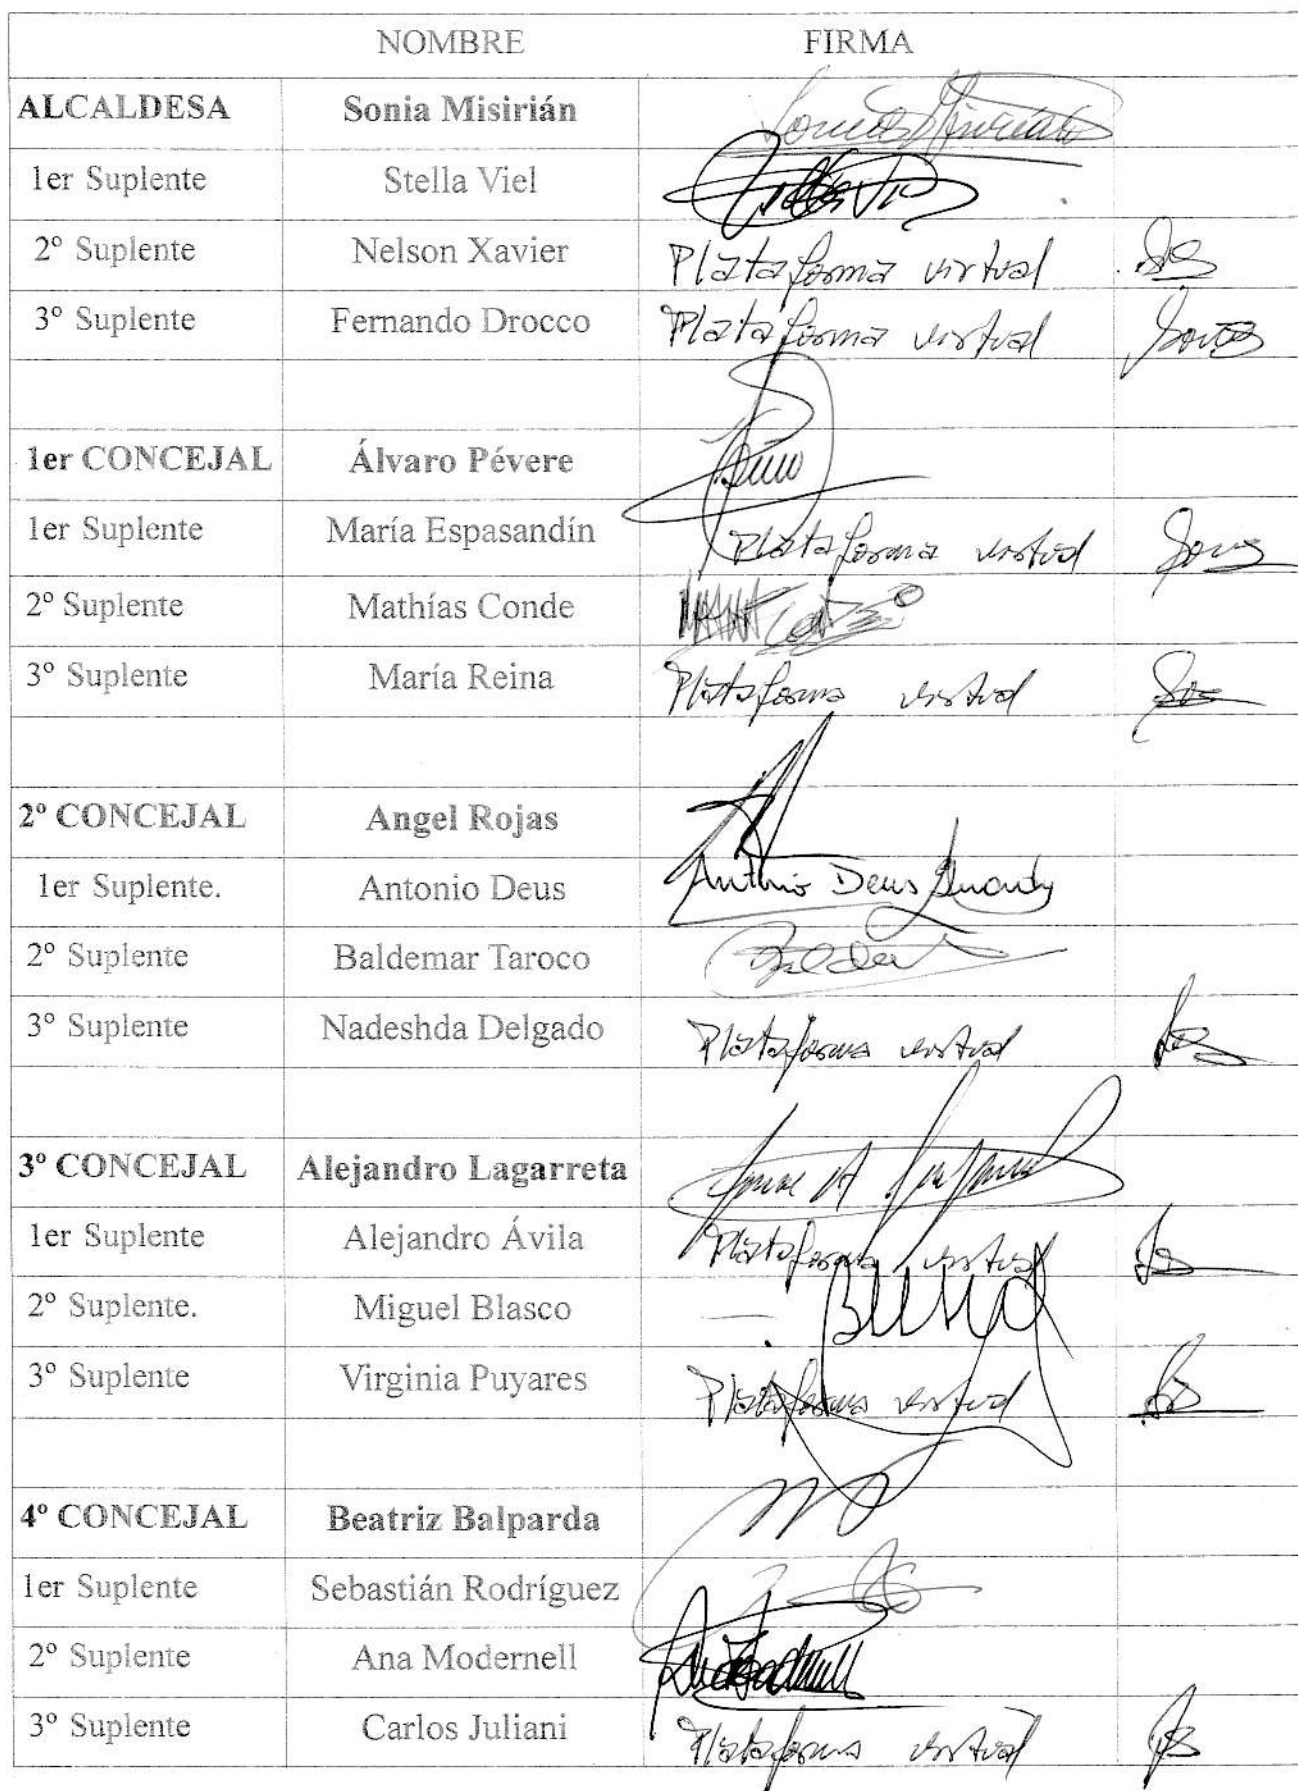 NOMBRE FIRMA
ALCALDESA Sonia Misirián
1er Suplente Stella Viel
2º Suplente Nelson Xavier Plataforma virtual
3º Suplente Fernando Drocco Plataforma virtual
1er CONCEJAL Álvaro Pévere
1er Suplente María Espasandín Plataforma virtual
2º Suplente Mathías Conde
3º Suplente María Reina Plataforma virtual
2º CONCEJAL Angel Rojas
1er Suplente. Antonio Deus Antonio Deus
2º Suplente Baldemar Taroco
3º Suplente Nadeshda Delgado Plataforma virtual
3º CONCEJAL Alejandro Lagarreta
1er Suplente Alejandro Ávila Plataforma virtual
2º Suplente. Miguel Blasco
3º Suplente Virginia Puyares Plataforma virtual
4º CONCEJAL Beatriz Balparda
1er Suplente Sebastián Rodríguez
2º Suplente Ana Modernell
3º Suplente Carlos Juliani Plataforma virtual